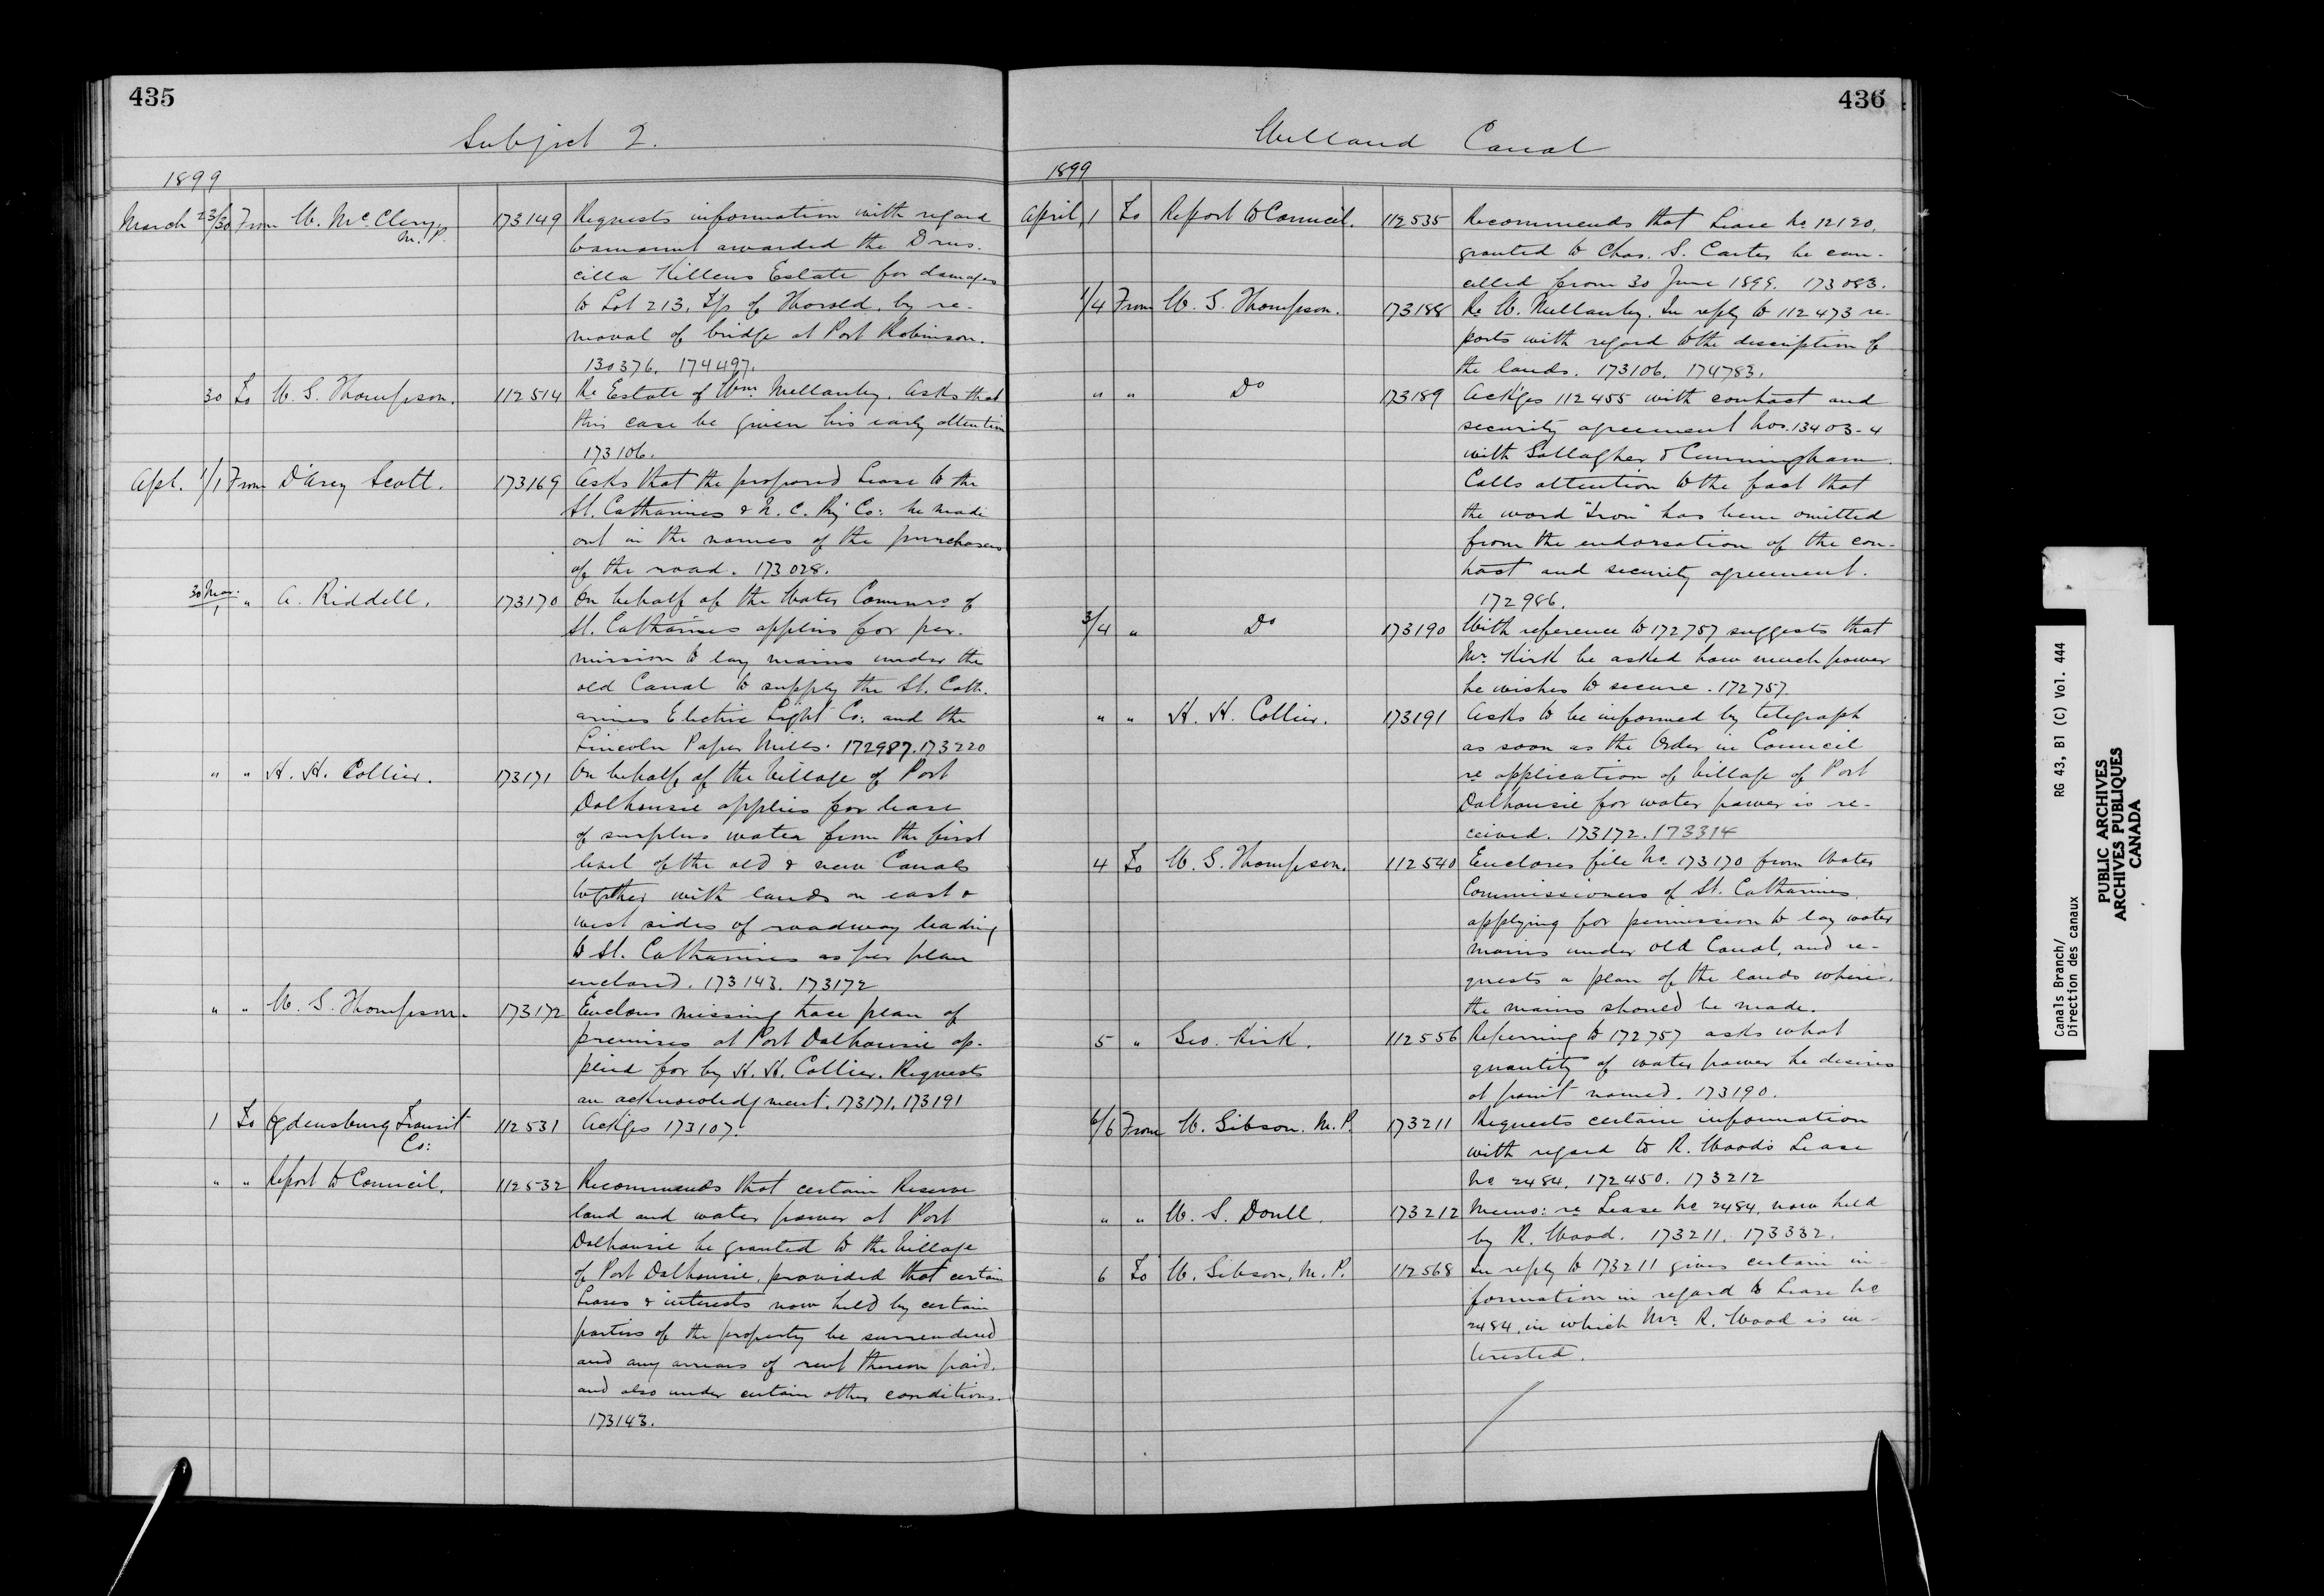 435
Subject 2.
1899
March 23/30 From W. McCleary M.P. 173149 Requests information with regard
to amount awarded the Drus-
cilla Killens Estate for damages
to Lot 213, T/p of Thorold, by re-
moval of bridge at Port Robinson.
130376. 174497.
30 To W. G. Thompson. 112514 Re Estate of Wm. Mellanby. Asks that
this case be given his early attention
173106.
Apl. 1/1 From D'Arcy Scott. 173169 Asks that the proposed Lease to the
St. Catharines & N. C. Ry Co: be made
out in the names of the purchasers
of the road. 173028.
30 Mar./1 " A. Riddell. 173170 On behalf of the Water Commrs of
St. Catharines applies for per-
mission to lay mains under the
old Canal to supply the St. Cath-
arines Electric Light Co: and the
Lincoln Paper Mills. 172987. 173220
" " H. H. Collier. 173171 On behalf of the Village of Port
Dalhousie applies for lease
of surplus water from the first
level of the old & new Canals
together with lands on east &
west sides of roadway leading
to St. Catharines as per plan
enclosed. 173143. 173172
" " W. G. Thompson. 173172 Encloses missing trace plan of
premises at Port Dalhousie ap-
plied for by H. H. Collier. Requests
an acknowledgment. 173171. 173191
1 To Ogdensburg Transit Co: 112531 Ackges 173107.
" " Report to Council. 112532 Recommends that certain Reserve
land and water power at Port
Dalhousie be granted to the Village
of Port Dalhousie, provided that certain
Leases & interests now held by certain
parties of the property be surrendered
and any arrears of rent thereon paid,
and also under certain other conditions.
173143.
436
Welland Canal
1899
April 1 To Report to Council. 112535 Recommends that Lease No. 12120,
granted to Chas. S. Carter be can-
celled from 30 June 1899. 173083.
1/4 From W. G. Thompson. 173188 Re W. Mellanby. In reply to 112473 re-
ports with regard to the description of
the lands. 173106. 174783.
" " Do 173189 Ackges 112455 with contract and
security agreement Nos. 13403-4
with Gallagher & Cunningham.
Calls attention to the fact that
the word "Iron" has been omitted
from the endorsation of the con-
tract and security agreement.
172986.
3/4 " Do 173190 With reference to 172757 suggests that
Mr. Kirk be asked how much power
he wishes to secure. 172757
" " H. H. Collier. 173191 Asks to be informed by telegraph
as soon as the Order in Council
re application of Village of Port
Dalhousie for water power is re-
ceived. 173172. 173314
4 To W. G. Thompson. 112540 Encloses file No. 173170 from Water
Commissioners of St. Catharines,
applying for permission to lay water
mains under old Canal, and re-
quests a plan of the lands where
the mains should be made.
5 " Geo. Kirk. 112556 Referring to 172757 asks what
quantity of water power he desires
at point named. 173190.
6/6 From W. Gibson. M.P. 173211 Requests certain information
with regard to R. Wood's Lease
No 2484. 172450. 173212
" " W. S. Doull. 173212 Memo: re Lease No 2484 now held
by R. Wood. 173211. 173332.
6 To W. Gibson, M.P. 112568 In reply to 173211 gives certain in-
formation in regard to Lease No
2484, in which Mr. R. Wood is in-
terested.
Canals Branch/ RG 43, B1 (C) Vol. 444
Direction des canaux
PUBLIC ARCHIVES
ARCHIVES PUBLIQUES
CANADA